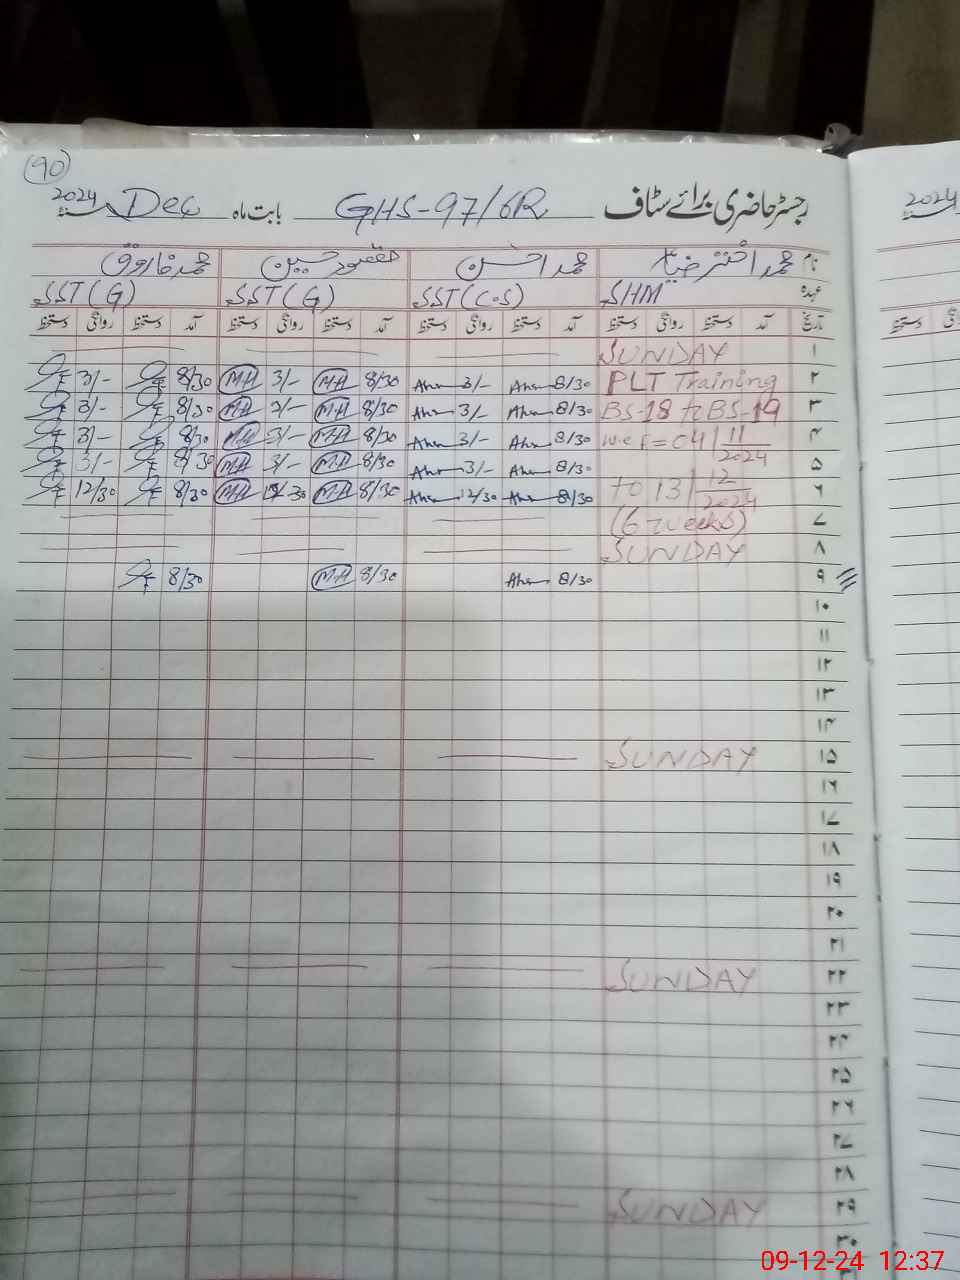 90
رجسٹر حاضری برائے سٹاف GHS-97/6R بابت ماہ Dec 2024
نام محمد اختر ضیاء محمد احسن مقصود حسین محمد فاروق
عہدہ SHM SST(C.S) SST(G) SST(G)
تاریخ آمد دستخط روانگی دستخط آمد دستخط روانگی دستخط آمد دستخط روانگی دستخط آمد دستخط روانگی دستخط
۱ SUNDAY
۲ PLT Training 8/30 Ahsn 3/- 8/30 M.H 3/- M.H 8/30 3/-
۳ BS-18 to BS-19 8/30 3/- 8/30 M.H 3/- M.H 8/30 3/-
۴ w.e.f = 04/11/2024 8/30 3/- 8/30 M.H 3/- M.H 8/30 3/-
۵ 8/30 3/- 8/30 M.H 3/- M.H 8/30 3/-
۶ to 13/12/2024 8/30 12/30 8/30 M.H 12/30 M.H 8/30 12/30
۷ (6 weeks)
۸ SUNDAY
۹ 8/30 8/30 M.H 8/30
۱۰
۱۱
۱۲
۱۳
۱۴
۱۵ SUNDAY
۱۶
۱۷
۱۸
۱۹
۲۰
۲۱
۲۲ SUNDAY
۲۳
۲۴
۲۵
۲۶
۲۷
۲۸
۲۹ SUNDAY
۳۰
2024
دستخط
09-12-24 12:37